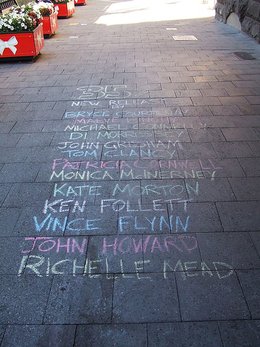 35
NEW RELEASE
BRYCE COURTENAY
MAEVE BINCHY
MICHAEL CONNELLY
DI MORRISSEY
JOHN GRISHAM
TOM CLANCY
PATRICIA CORNWELL
MONICA McINERNEY
KATE MORTON
KEN FOLLETT
VINCE FLYNN
JOHN HOWARD
RICHELLE MEAD